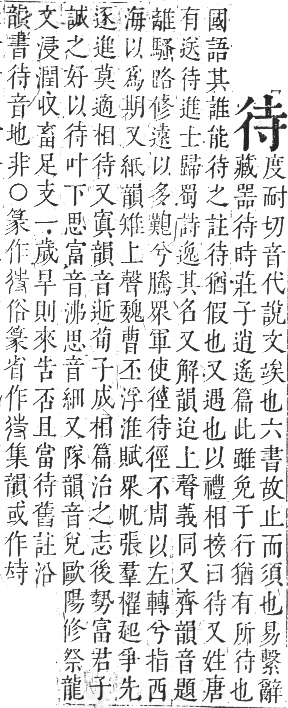 待
度耐切音代說文竢也六書故止而須也易繫辭
藏器待時莊子逍遙篇此雖免于行猶有所待也
國語其誰能待之註待猶假也又遇也以禮相接曰待又姓唐
有送待進士歸蜀詩逸其名又解韻迨上聲義同又齊韻音題
離騷路修遠以多艱兮騰眾軍使徑待徑不周以左轉兮指西
海以為期又紙韻雉上聲魏曹丕浮淮賦眾帆張羣櫂起爭先
逐進莫適相待又寘韻音逝荀子成相篇治之志後勢富君子
誠之好以待叶下思富音沸思音細又隊韻音兌歐陽修祭龍
文浸潤收畜足支一歲旱則來告否且當待舊註沿
韻書待音地非○篆作𢓊俗篆省作𢓊集韻或作㣥